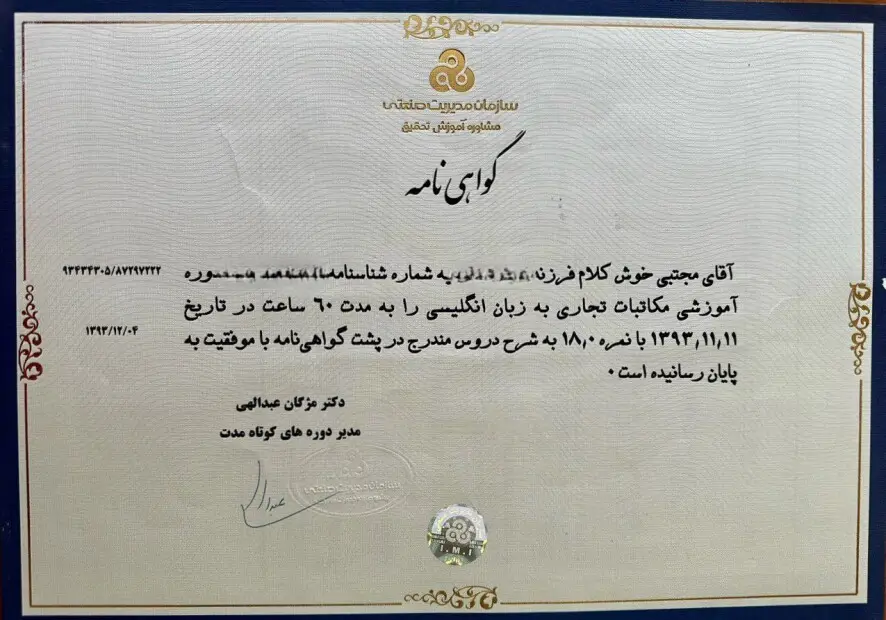 سازمان مدیریت صنعتی
مشاوره آموزش تحقیق
گواهی نامه
۹۳۴۳۴۳۰۵/۸۷۲۹۷۲۲۲
۱۳۹۳/۱۲/۰۴
آقای مجتبی خوش کلام فرزند به شماره شناسنامه
آموزشی مکاتبات تجاری به زبان انگلیسی را به مدت ۶۰ ساعت در تاریخ
۱۳۹۳,۱۱,۱۱ با نمره ۱۸,۰ به شرح دروس مندرج در پشت گواهی‌نامه با موفقیت به
پایان رسانیده است.
دکتر مژگان عبدالهی
مدیر دوره های کوتاه مدت
سازمان مدیریت صنعتی
I.M.I